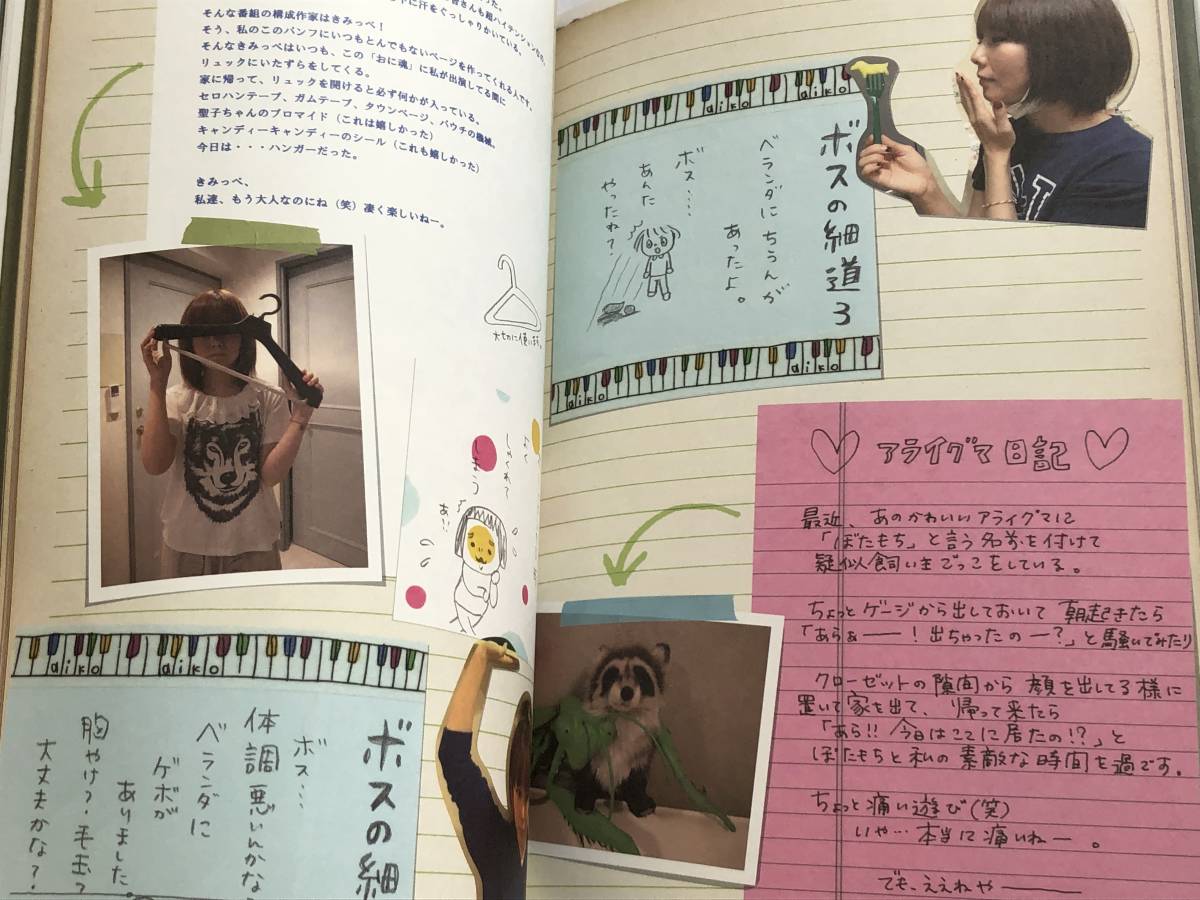 そんな番組の構成作家はきみっぺ！
そう、私のこのパンフにいつもとんでもないページを作ってくれる人です。
そんなきみっぺはいつも、この「おに魂」に私が出演してる間に
リュックにいたずらをしてくる。
家に帰って、リュックを開けると必ず何かが入っている。
セロハンテープ、ガムテープ、タウンページ、パウチの機械、
聖子ちゃんのブロマイド（これは嬉しかった）
キャンディーキャンディーのシール（これも嬉しかった）
今日は・・・ハンガーだった。
きみっぺ、
私達、もう大人なのにね（笑）凄く楽しいねー。
大切に使います。
しゃくれて
しまう
あ!!
aiko
aiko
ボスの細
ボス…
体調悪いんかな
ベランダに
ゲボが
ありました。
胸やけ?毛玉?
大丈夫かな?
aiko
aiko
ボスの細道3
ベランダにちうんが
あったよ。
ボス…
あんた
やったね?
aiko
aiko
アライグマ日記
最近、あのかわいいアライグマに
「ぼたもち」と言う名前を付けて
疑似飼い主ごっこをしている。
ちょっとゲージから出しておいて朝起きたら
「あらぁー!出ちゃったのー?」と騒いでみたり
クローゼットの隙間から顔を出してる様に
置いて家を出て、帰って来たら
「あら!!今日はここに居たの!?」と
ぼたもちと私の素敵な時間を過です。
ちょっと痛い遊び(笑)
いや…本当に痛いねー。
でも、ええねや———